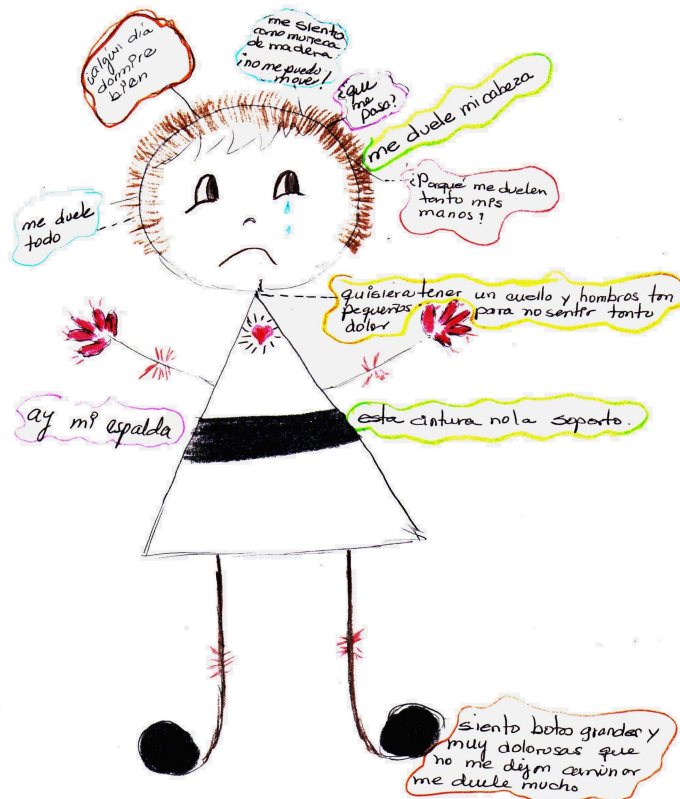 ¿algun día
dormire
bien
me siento
como muñeca
de madera
¡no me puedo
move!
¿que
me
pasa?
me duele mi cabeza
¿Porqué me duelen
tanto mis
manos?
me duele
todo
quisiera tener un cuello y hombros tan
pequeños para no sentir tanto
dolor
ay mi espalda
esta cintura no la soporto.
siento botas grandes y
muy dolorosas que
no me dejan caminar
me duele mucho